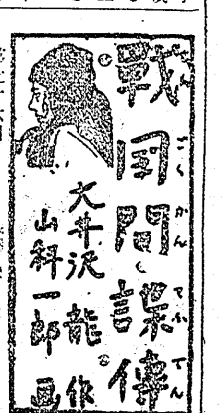 戰国間諜傳
ごくかんてふでん
大井沢龍作
山科一郎画